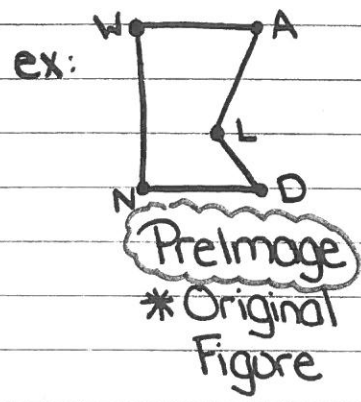 W A
ex:
L
N D
PreImage
* Original
Figure